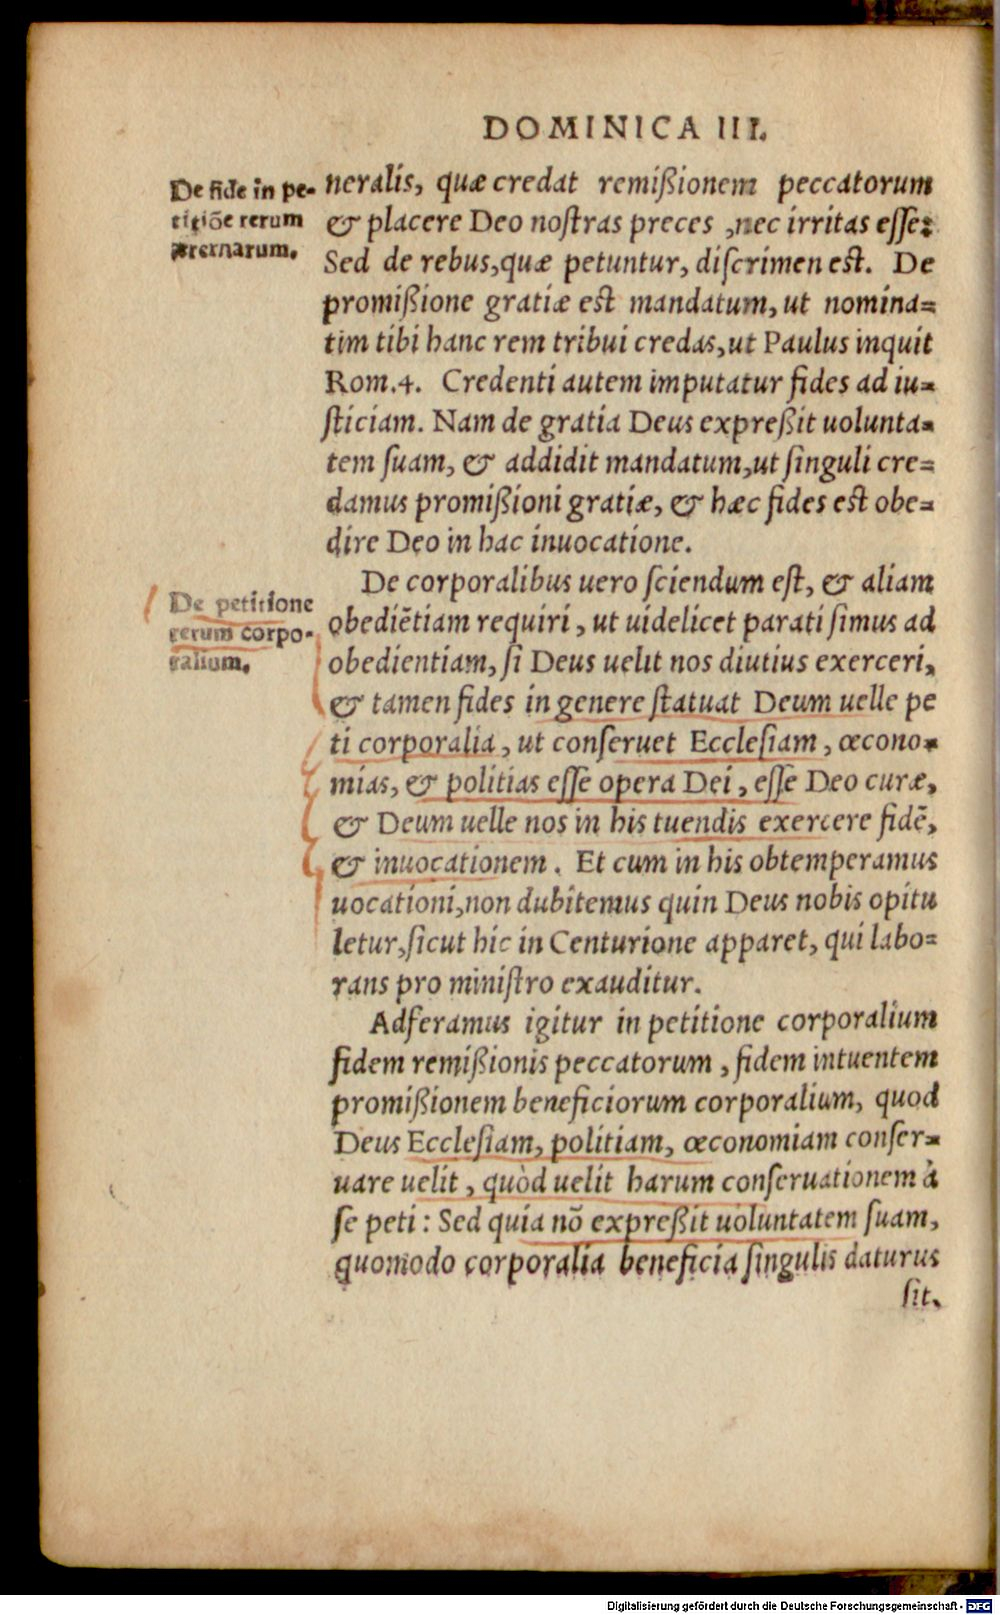 DOMINICA III.
De fide in pe-
titiõe rerum
æternarum.
neralis, quæ credat remißionem peccatorum
& placere Deo noſtras preces, nec irritas eſſe:
Sed de rebus, quæ petuntur, diſcrimen eſt. De
promißione gratiæ eſt mandatum, ut nomina=
tim tibi hanc rem tribui credas, ut Paulus inquit
Rom.4. Credenti autem imputatur fides ad iu=
ſticiam. Nam de gratia Deus expreßit uolunta=
tem ſuam, & addidit mandatum, ut ſinguli cre=
damus promißioni gratiæ, & hæc fides eſt obe=
dire Deo in hac inuocatione.
De petitione
rerum corpo-
ralium.
De corporalibus uero ſciendum eſt, & aliam
obediẽtiam requiri, ut uidelicet parati ſimus ad
obedientiam, ſi Deus uelit nos diutius exerceri,
& tamen fides in genere ſtatuat Deum uelle pe
ti corporalia, ut conſeruet Eccleſiam, œcono=
mias, & politias eſſe opera Dei, eſſe Deo curæ,
& Deum uelle nos in his tuendis exercere fidẽ,
& inuocationem. Et cum in his obtemperamus
uocationi, non dubitemus quin Deus nobis opitu
letur, ſicut hic in Centurione apparet, qui labo=
rans pro miniſtro exauditur.
Adferamus igitur in petitione corporalium
fidem remißionis peccatorum, fidem intuentem
promißionem beneficiorum corporalium, quod
Deus Eccleſiam, politiam, œconomiam conſer=
uare uelit, quòd uelit harum conſeruationem à
ſe peti: Sed quia nõ expreßit uoluntatem ſuam,
quomodo corporalia beneficia ſingulis daturus
ſit,
Digitalisierung gefördert durch die Deutsche Forschungsgemeinschaft - DFG